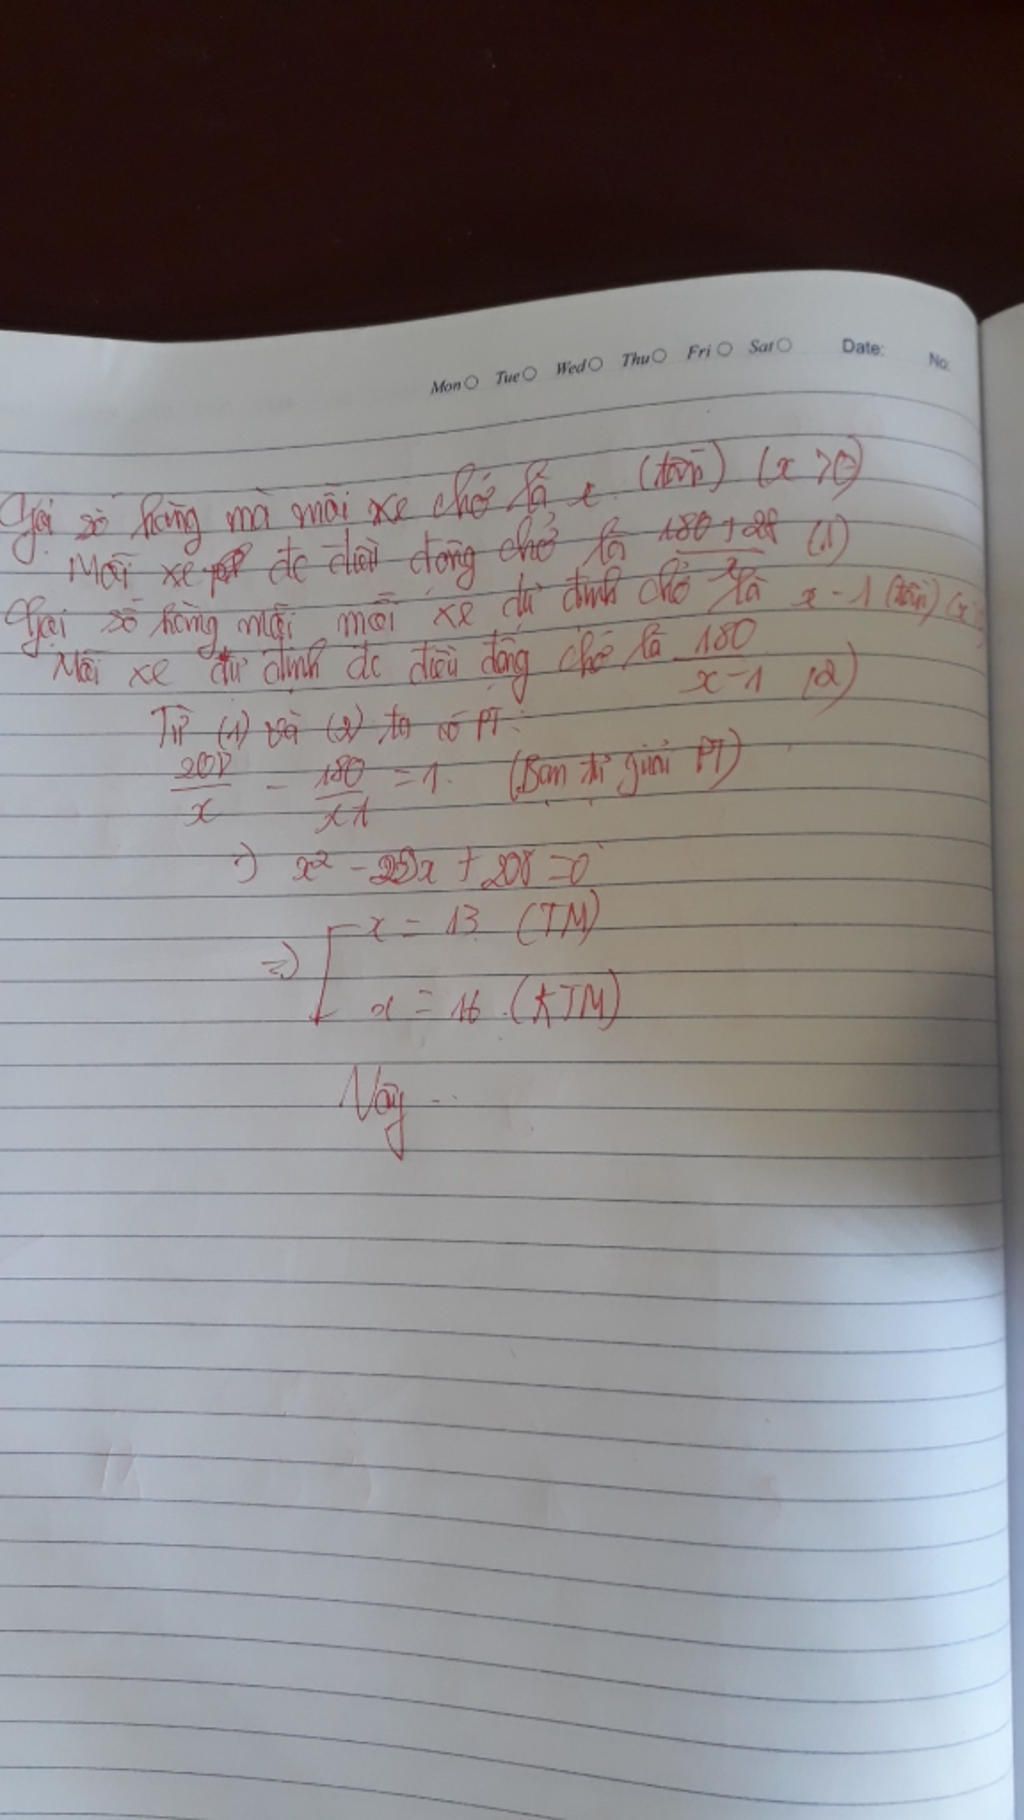 Mon Tue Wed Thu Fri Sat Date: No:
Gọi số hàng mà mỗi xe chở là x (tấn) (x > 0)
Mỗi xe đc điều động chở là 180 + 28 / x (1)
Gọi số hàng mỗi xe dự định chở là x - 1 (tấn)
Mỗi xe dự định đc điều động chở là 180 / x - 1 (2)
Từ (1) và (2) ta có PT:
208 / x - 180 / x-1 = 1. (Bạn tự giải PT)
=> x² - 29x + 208 = 0
=> x = 13 (TM)
x = 16 (KTM)
Vậy ...